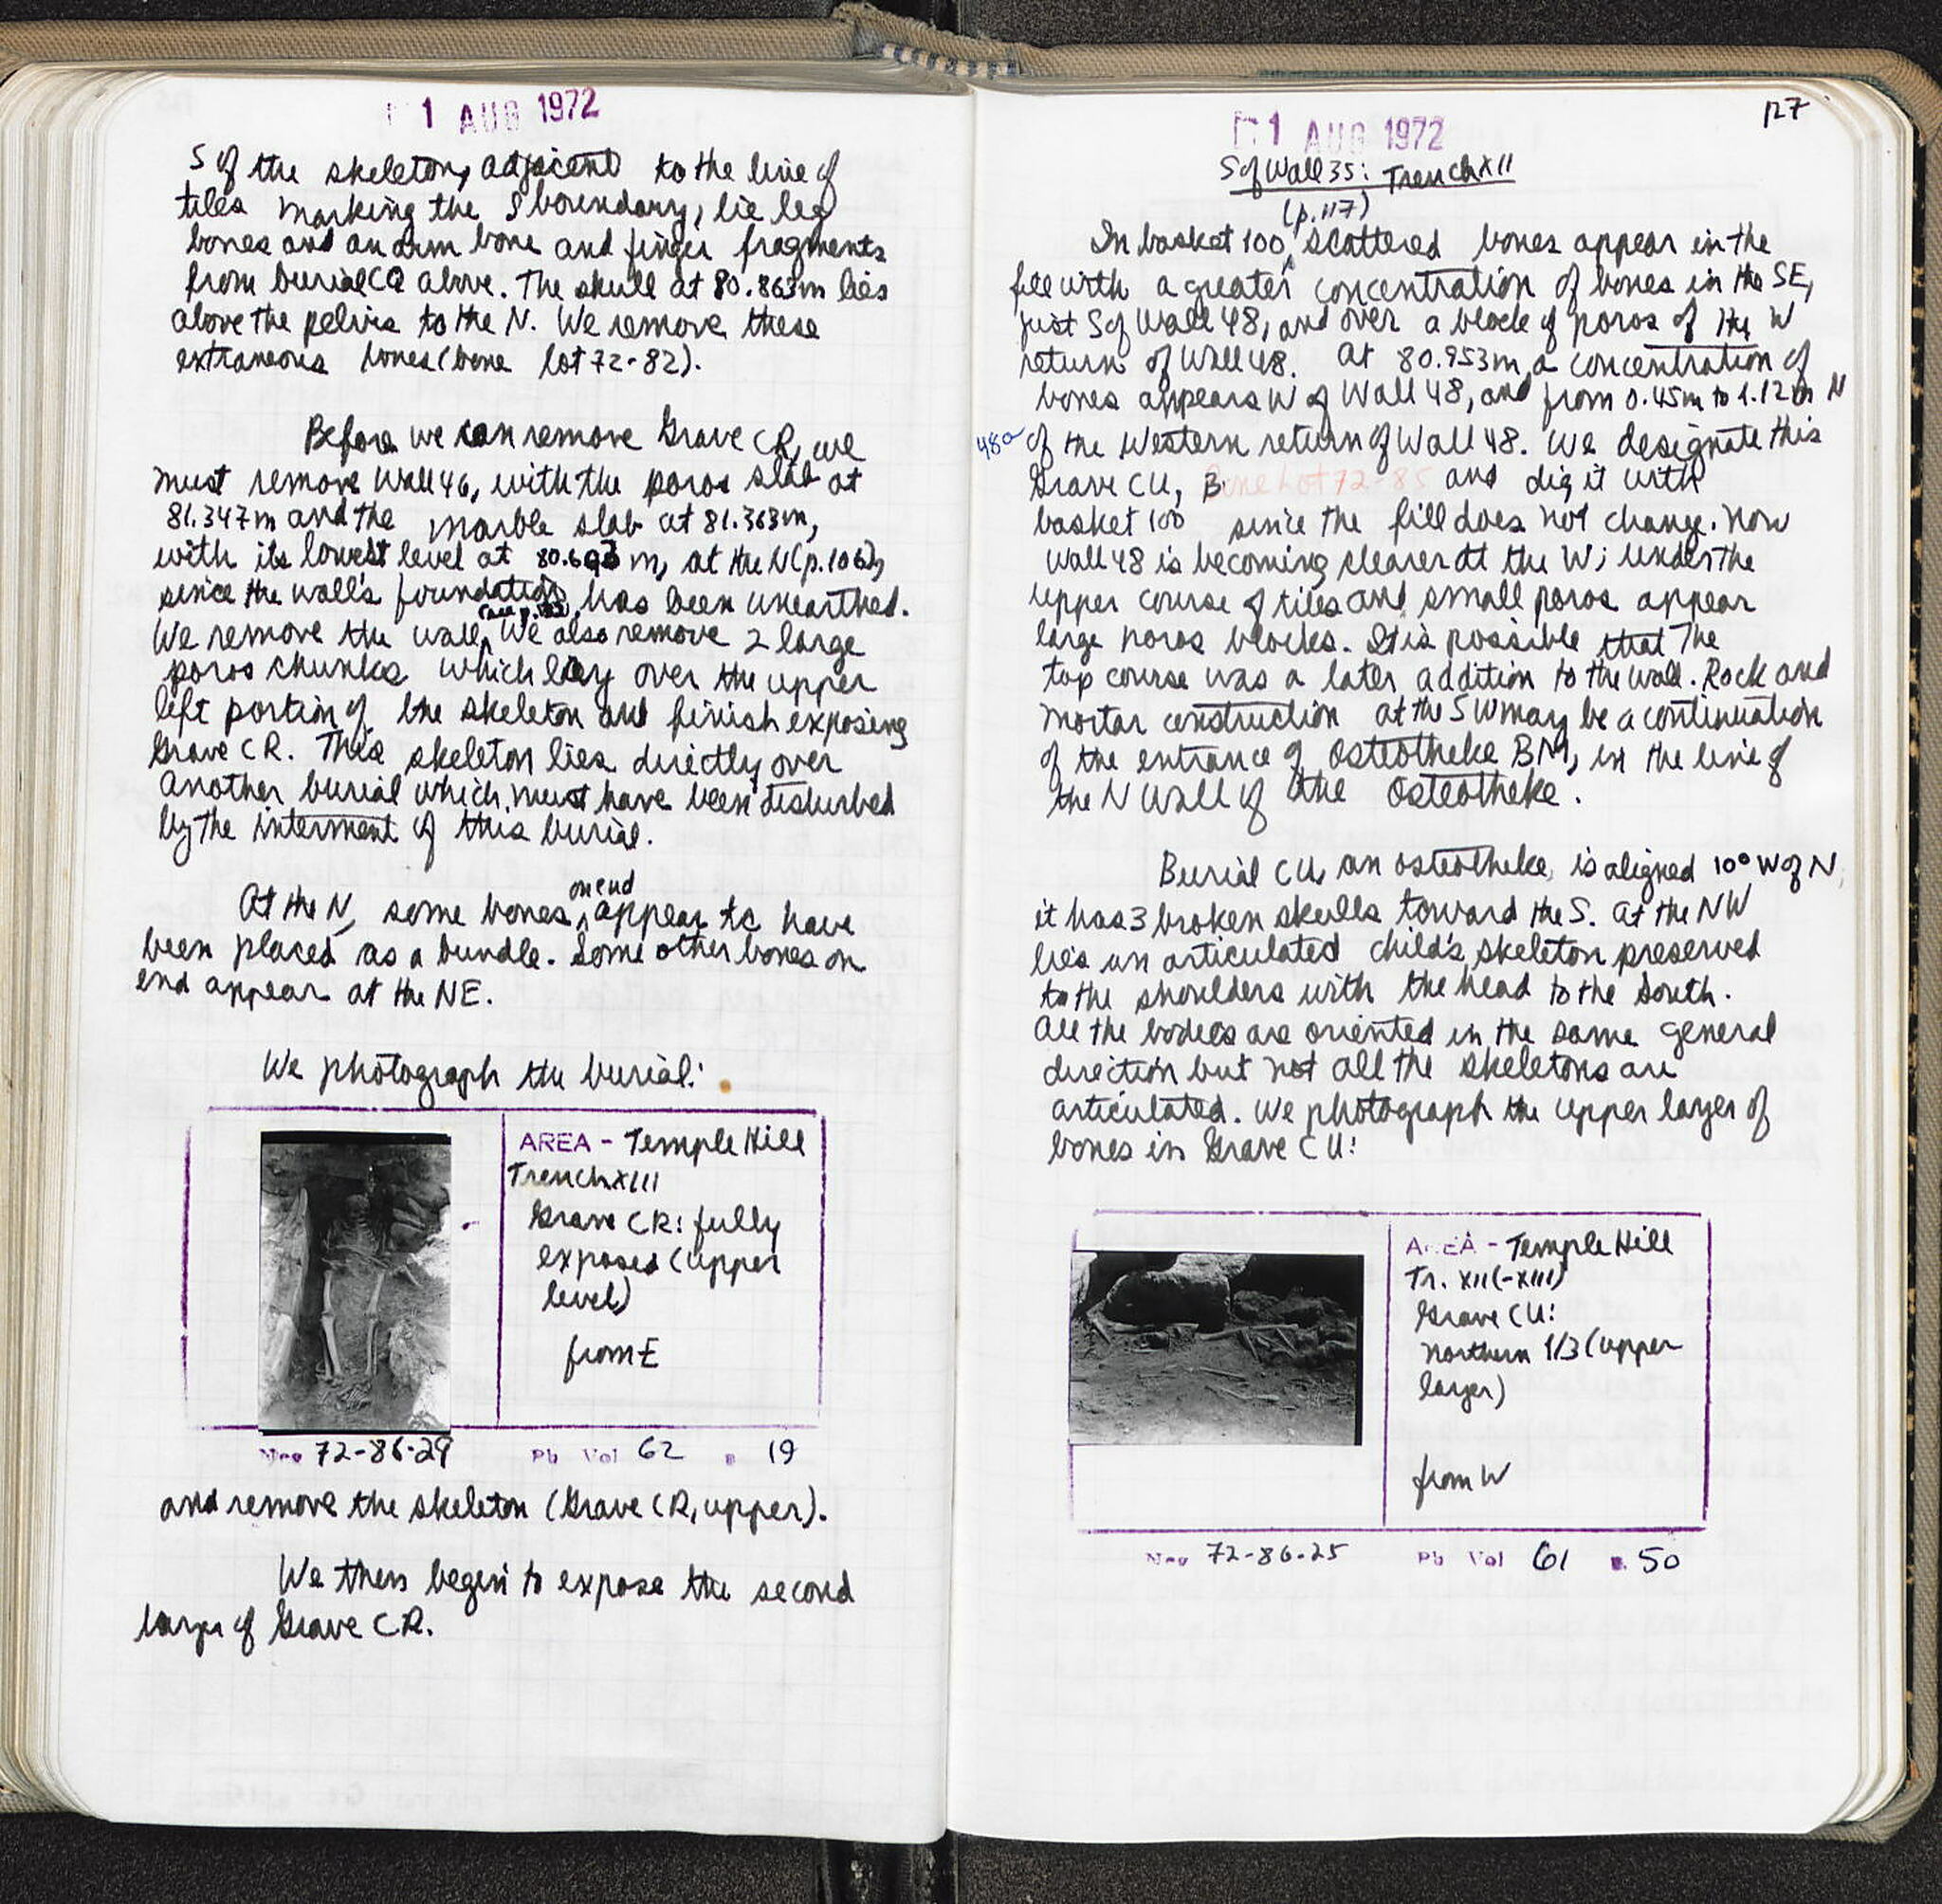 1 AUG 1972
S of the skeleton, adjacent to the line of
tiles marking the S boundary, lie leg
bones and an arm bone and finger fragments
from burial CQ above. The skull at 80.863m lies
above the pelvis to the N. We remove these
extraneous bones (bone lot 72-82).
Before we can remove Grave CR, we
must remove Wall 46, with the poros slab at
81.347m and the marble slab at 81.363m,
with its lowest level at m, at the N (p.106),
since the wall's foundation has been unearthed.
We remove the wall. We also remove 2 large
poros chunks which lay over the upper
left portion of the skeleton and finish exposing
Grave CR. This skeleton lies directly over
another burial which must have been disturbed
by the interment of this burial.
At the N, some bones on end appear to have
been placed as a bundle. Some other bones on
end appear at the NE.
We photograph the burial:
AREA - Temple Hill
Trench XIII
Grave CR: fully
exposed (upper
level)
from E
Neg 72-86-29 Pb Vol 62 p. 19
and remove the skeleton (Grave CR, upper).
We then begin to expose the second
layer of Grave CR.
127
1 AUG 1972
S of Wall 35: Trench XII
(p.117)
In basket 100, scattered bones appear in the
fill with a greater concentration of bones in the SE,
just S of Wall 48, and over a block of poros of the W
return of Wall 48. At 80.953m, a concentration of
bones appears W of Wall 48, and from 0.45m to 1.12m N
48a of the Western return of Wall 48. We designate this
Grave CU, Bone Lot 72-85 and dig it with
basket 100 since the fill does not change. Now
Wall 48 is becoming clearer at the W; under the
upper course of tiles and small poros appear
large poros blocks. It is possible that the
top course was a later addition to the wall. Rock and
mortar construction at the SW may be a continuation
of the entrance of Osteotheke BM, in the line of
the N wall of the Osteotheke.
Burial CU, an osteotheke, is aligned 10° W of N;
it has 3 broken skulls toward the S. At the NW
lies an articulated child's skeleton preserved
to the shoulders with the head to the South.
All the bodies are oriented in the same general
direction but not all the skeletons are
articulated. We photograph the upper layer of
bones in Grave CU:
AREA - Temple Hill
Tr. XII(-XIII)
Grave CU:
Northern 1/3 (upper
layer)
from W
Neg 72-86-25 Pb Vol 61 p. 50